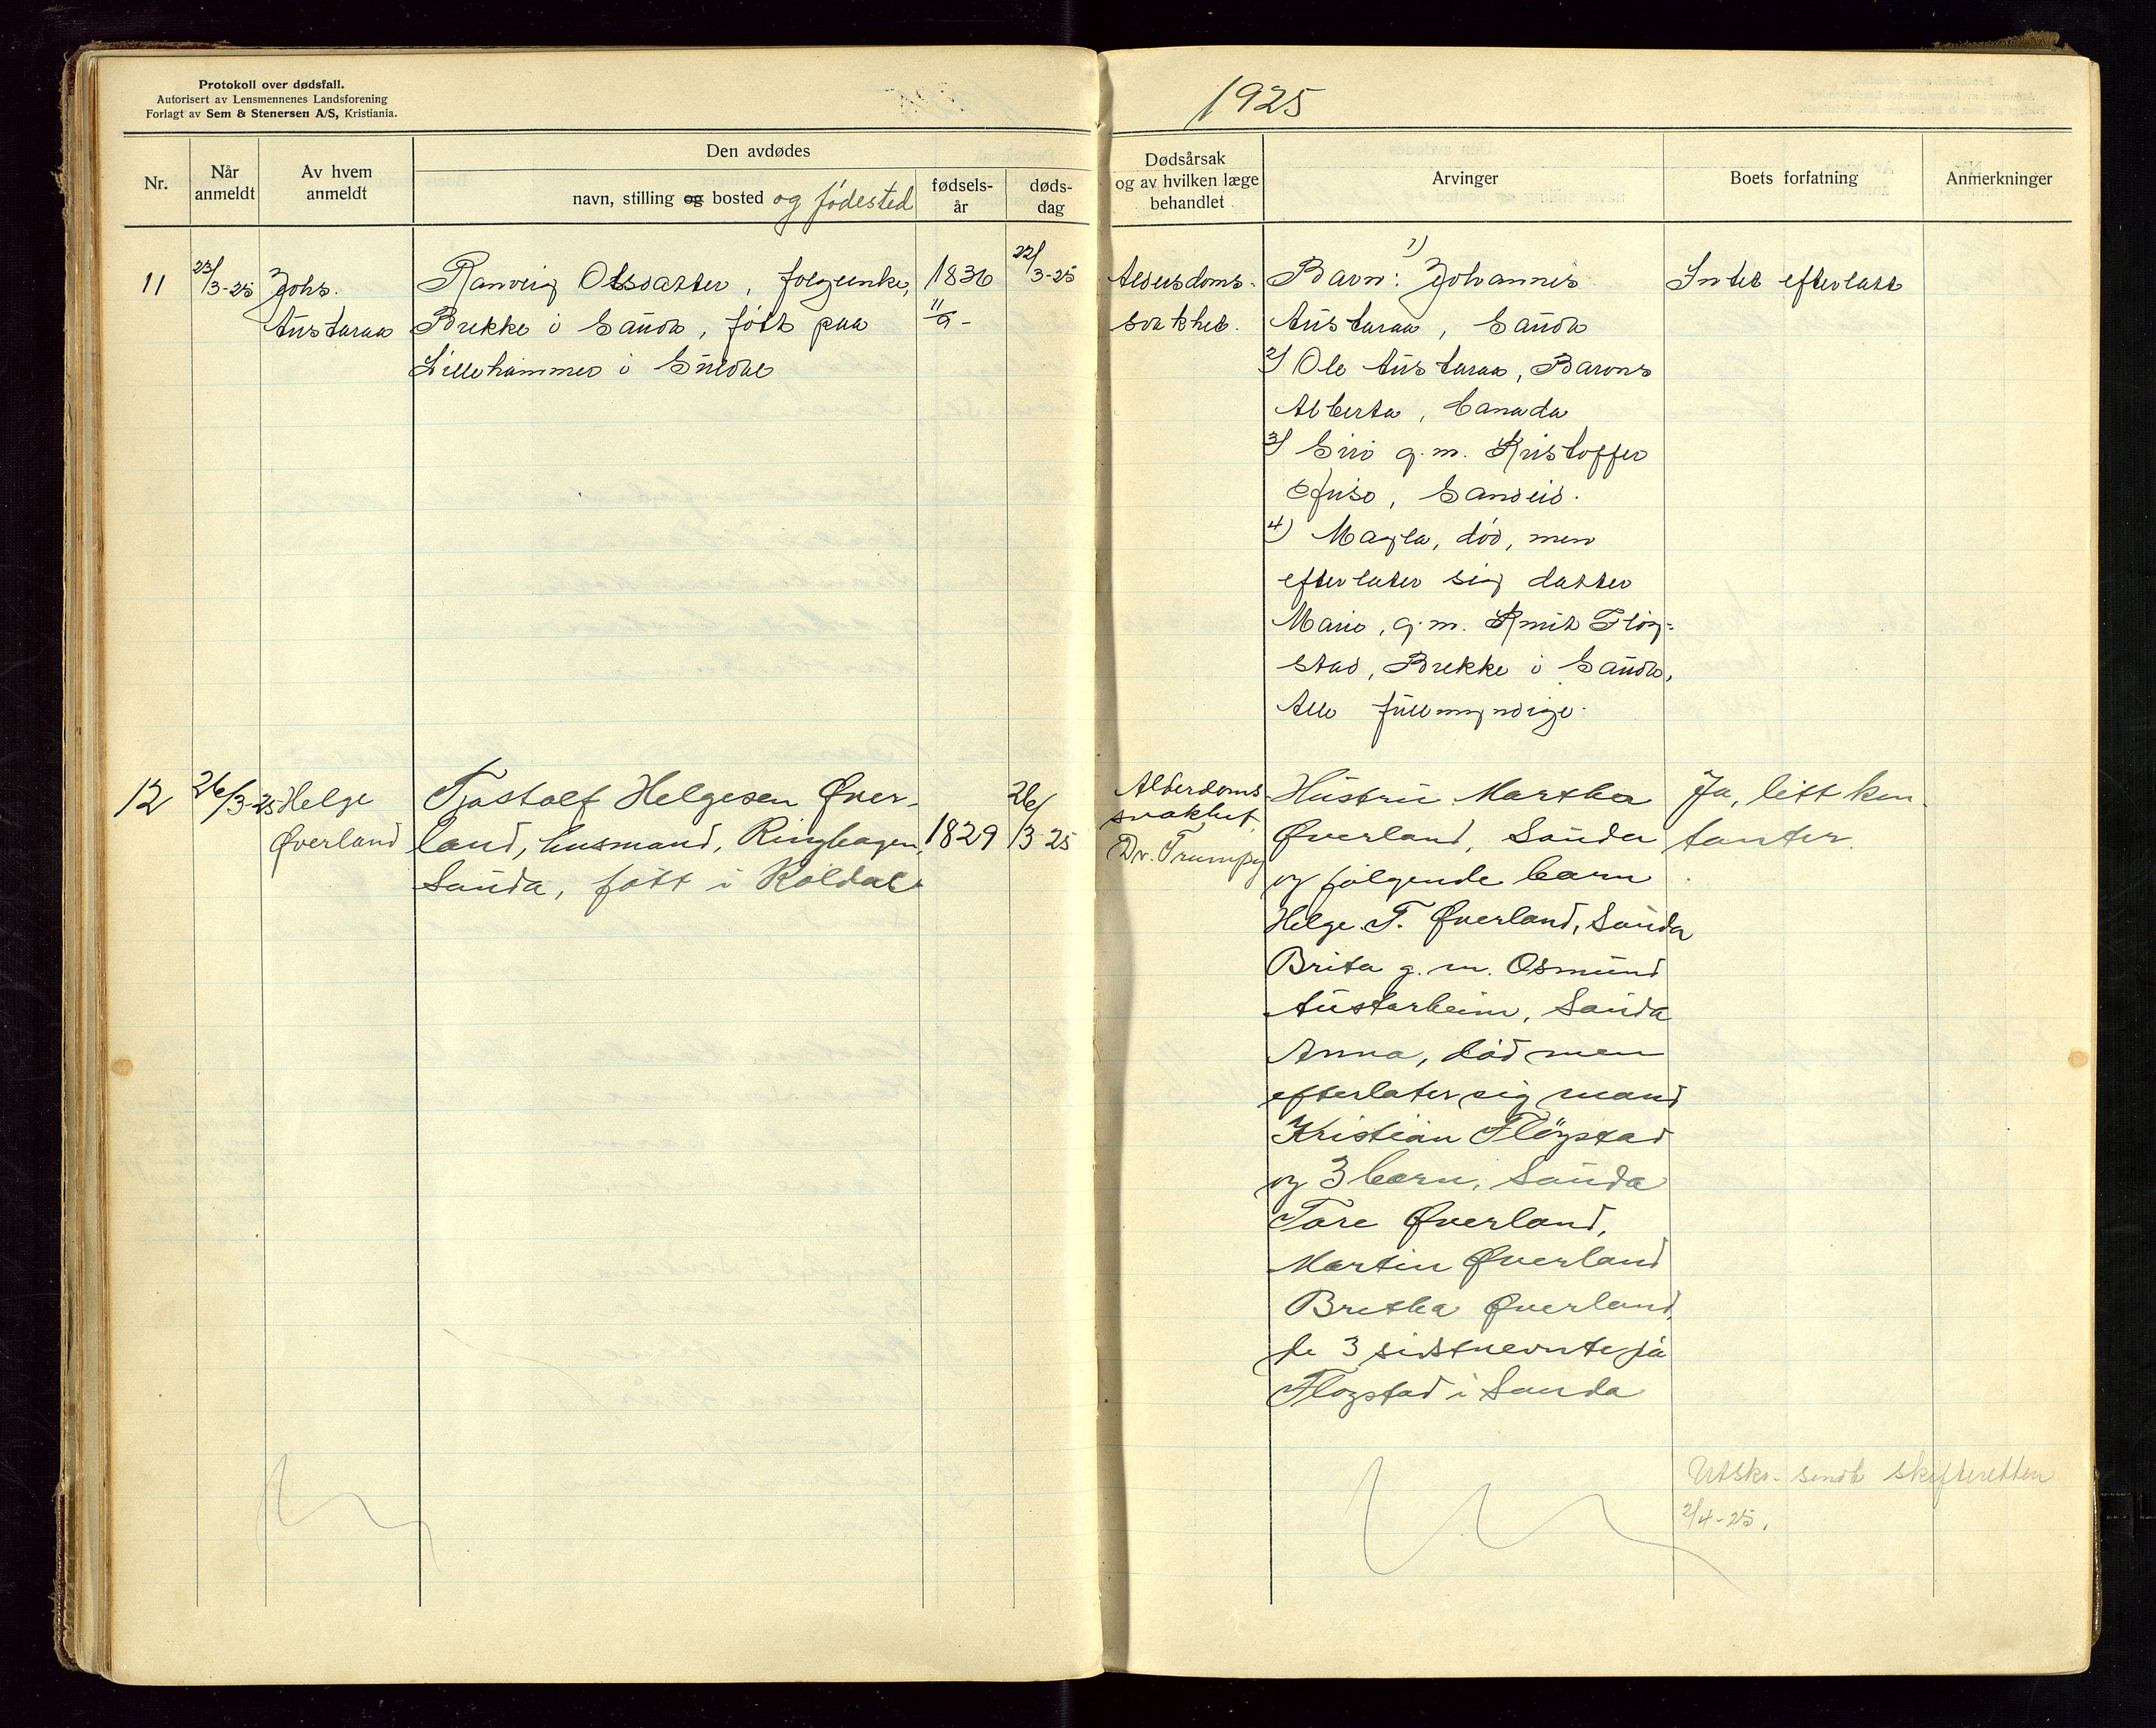 Protokoll over dødsfall.
Autorisert av Lensmennenes Landsforening
Forlagt av Sem & Stenersen A/S, Kristiania.
1925
Nr.
Når anmeldt
Av hvem anmeldt
Den avdødes
navn, stilling og bosted og fødested
fødsels-
år
døds-
dag
Dødsårsak
og av hvilken læge
behandlet
Arvinger
Boets forfatning
Anmerkninger
11
23/3-25
Johs.
Austaraa
Ranveig Olsdatter, folgeenke,
Brekke i Sauda, født paa
Lillehammer i Suldal
1836
11/9-
22/3-25
Alderdoms-
svakhet.
Barn: 1) Johannes
Austaraa, Sauda
2) Ole Austaraa, Barons
Alberta, Canada
3) Siri g.m. Kristoffer
, Sandeid.
4) Magla, død, men
efterlater sig datter
Marie, g.m. Knut Fløg-
stad, Brekke i Sauda,
Alle fuldmyndige.
Intet efterlatt
12
26/3-25
Helge
Øverland
Tjostolf Helgesen Øver-
land, husmand, Ringhagen,
Sauda, født i Røldal
1829
26/3-25
Alderdoms
svakhet
Dr. Trumpy
Hustru Martha
Øverland, Sauda
og følgende barn
Helge T. Øverland, Sauda
Brita g. m. Osmund
Austarheim, Sauda
Anna, død men
efterlater sig mand
Kristian Fløgstad
og 3 barn, Sauda
Tore Øverland,
Martin Øverland
Bretha Øverland,
de 3 sidstnevnte på
Fløgstad i Sauda
Ja, litt kon-
tanter.
Utskr. sendt skifteretten
2/4-25.